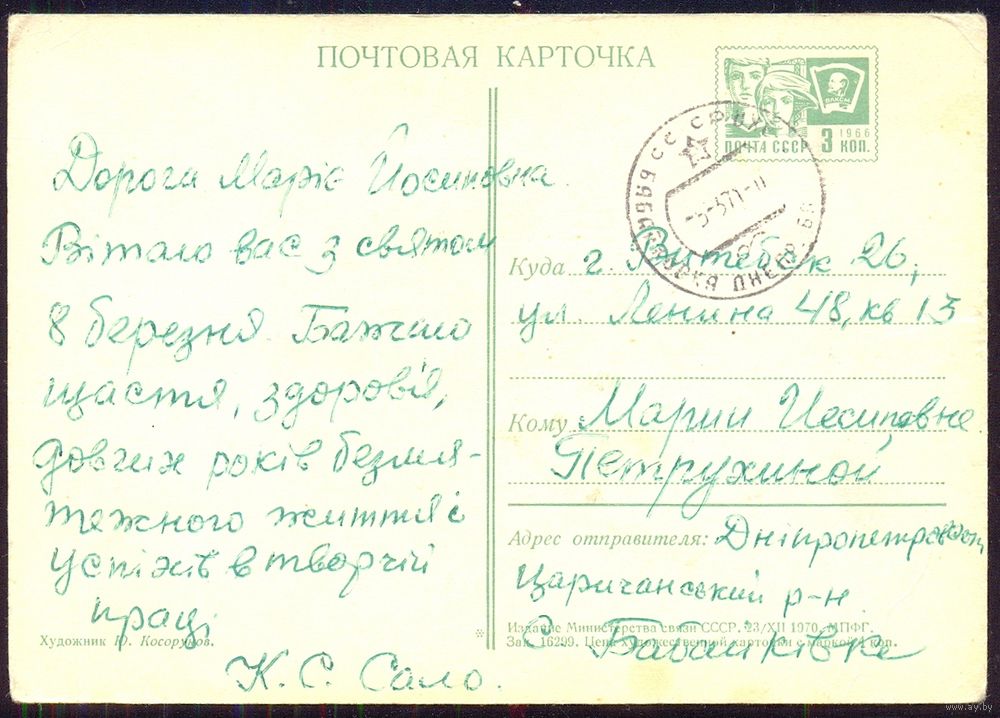 ПОЧТОВАЯ КАРТОЧКА
ВЛКСМ
1966
ПОЧТА СССР 3 КОП.
Дорога Маріє Йосиповна.
Вітаю вас з святом
8 березня. Бажаю
щастя, здоров'я,
довгих років безмя-
тежного життя і
успіхів в творчій
праці
К. С. Сало.
Художник Ю. Косоруков.
Куда г. Витебск 26,
ул. Ленина 48, кв 13
Кому Марии Иосиповне
Петрухиной
Адрес отправителя: Дніпропетровськ
Царичанський р-н
С Бабайківка
Издание Министерства связи СССР. 23/XII 1970. МПФГ.
Зак. 16299. Цена художественной карточки с маркой 4 коп.
www.ay.by